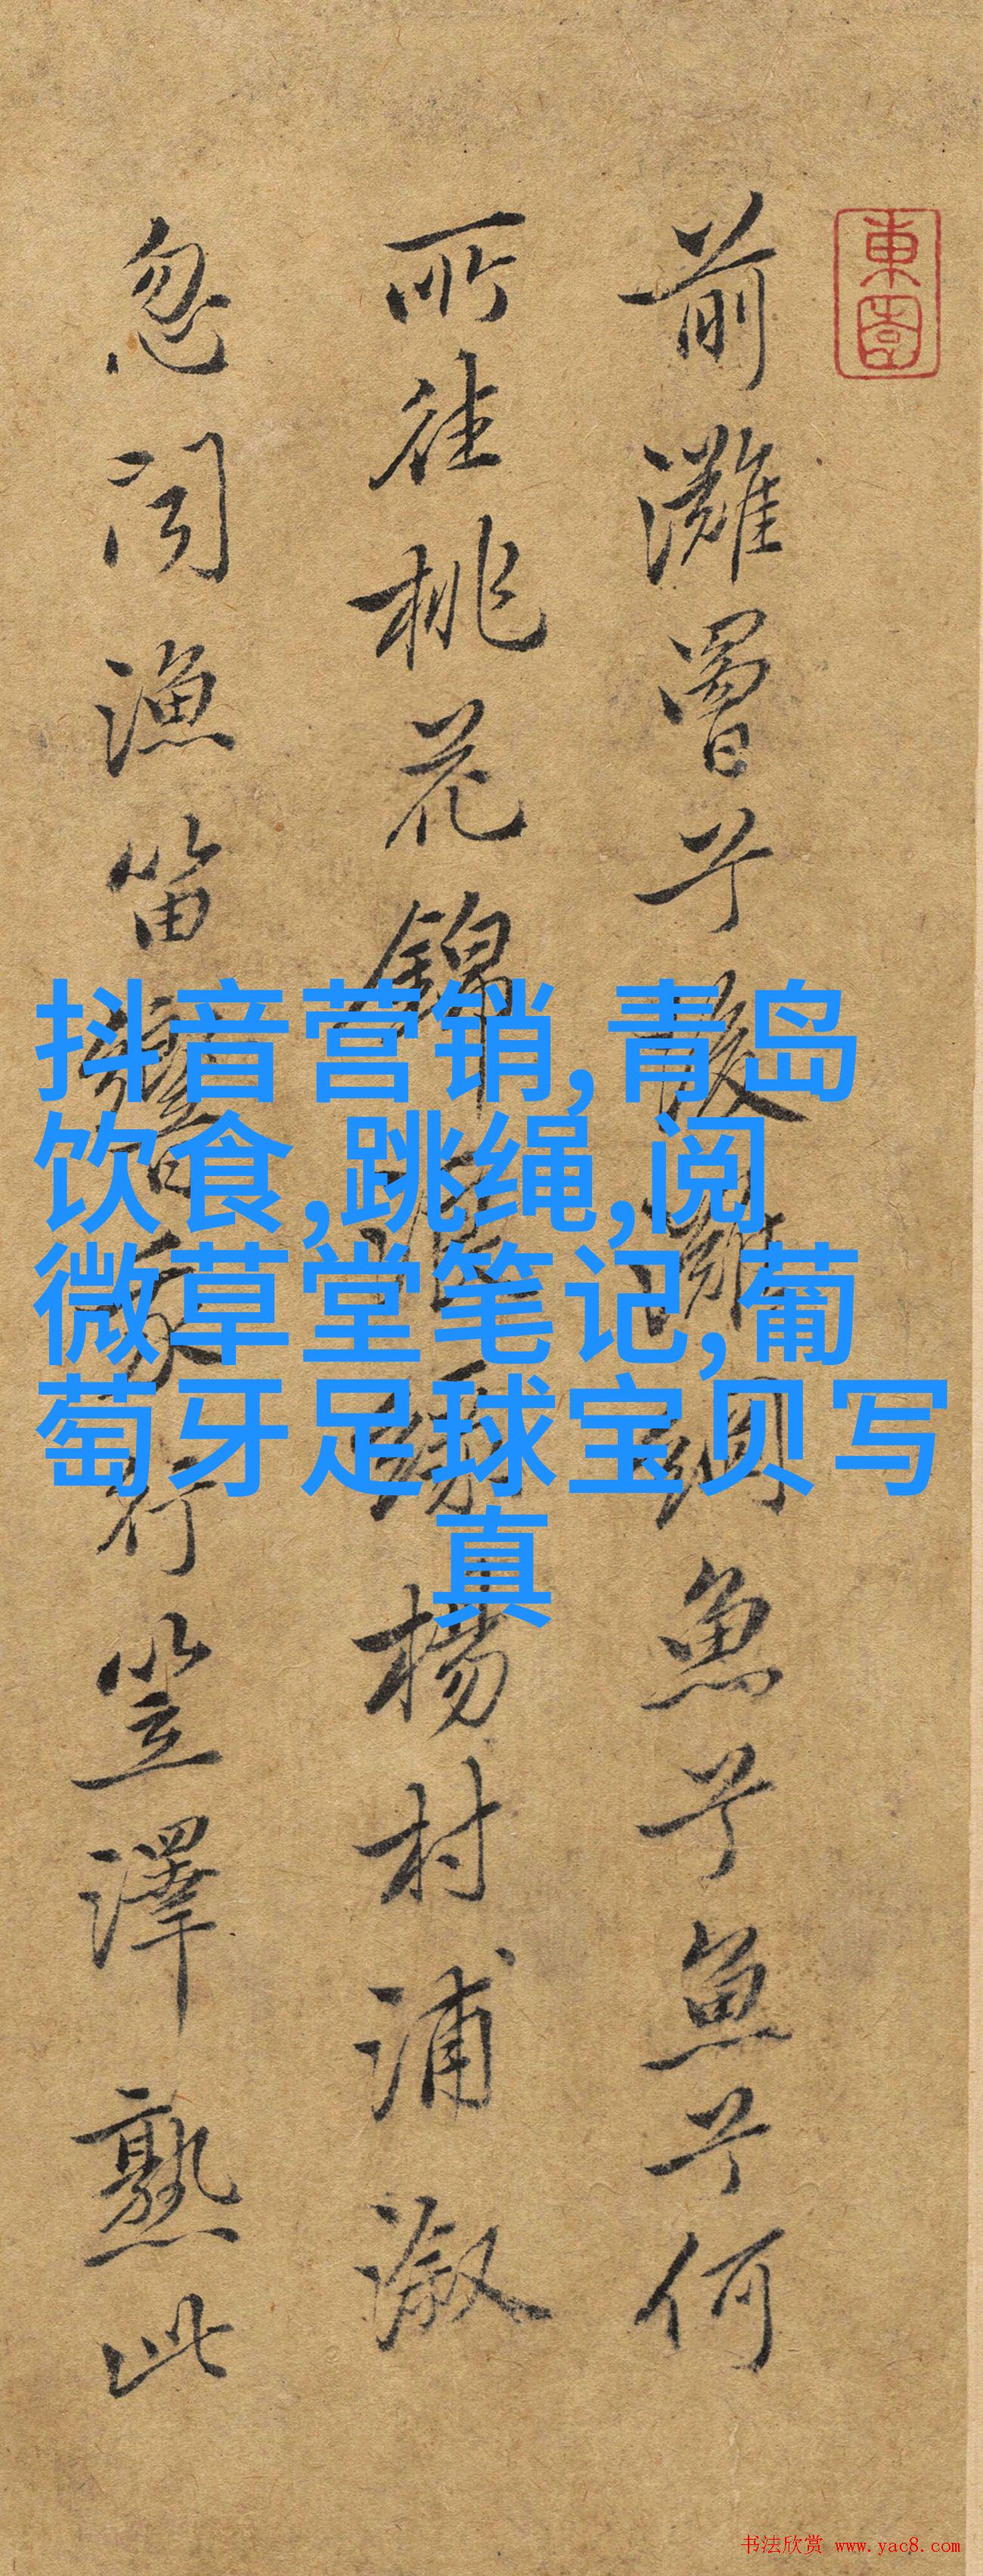 東
前灘罾兮後灘網魚兮魚兮何
所徃桃花錦浪綠楊村浦溆
忽聞漁笛響我行笠澤熟此
抖音营销,青岛
饮食,跳绳,阅
微草堂笔记,葡
萄牙足球宝贝写
真
书法欣赏 www.yac8.com